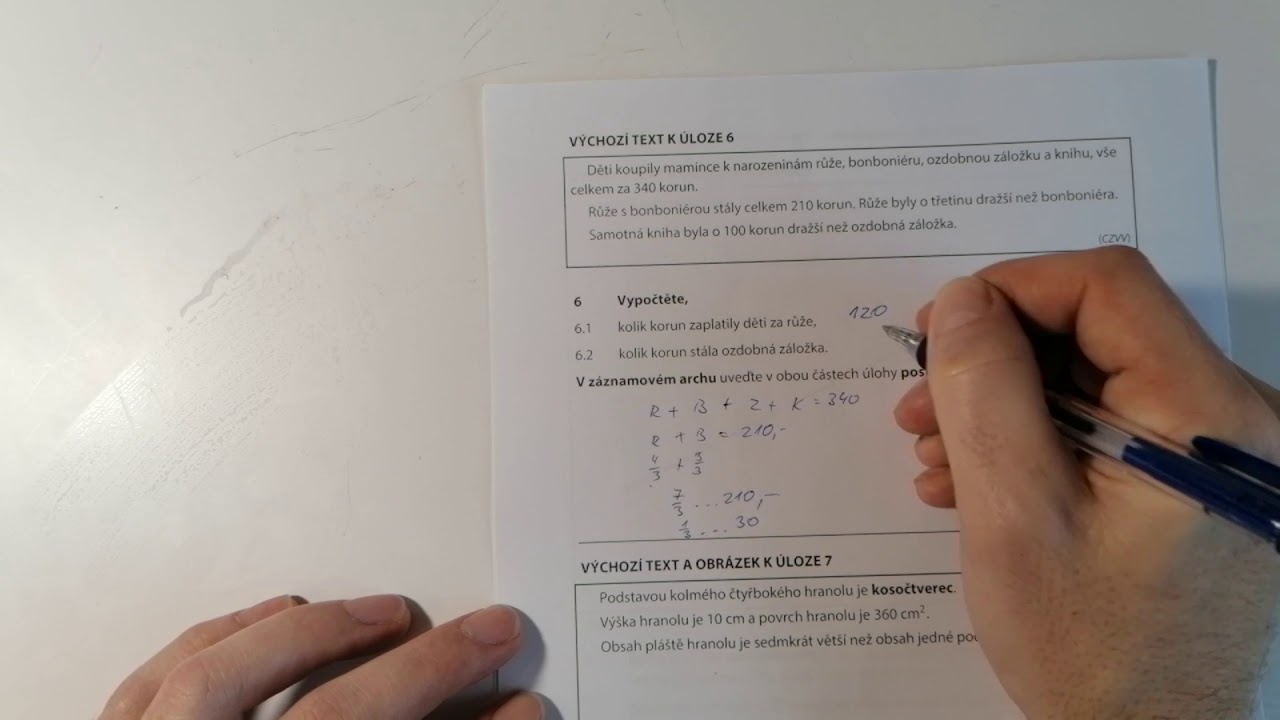 VÝCHOZÍ TEXT K ÚLOZE 6
Děti koupily mamince k narozeninám růže, bonboniéru, ozdobnou záložku a knihu, vše
celkem za 340 korun.
Růže s bonboniérou stály celkem 210 korun. Růže byly o třetinu dražší než bonboniéra.
Samotná kniha byla o 100 korun dražší než ozdobná záložka.
(CZVV)
6 Vypočtěte,
6.1 kolik korun zaplatily děti za růže, 120
6.2 kolik korun stála ozdobná záložka.
V záznamovém archu uveďte v obou částech úlohy
R + B + Z + K = 340
R + B = 210,-
4/3 + 3/3
7/3 ... 210,-
1/3 ... 30
VÝCHOZÍ TEXT A OBRÁZEK K ÚLOZE 7
Podstavou kolmého čtyřbokého hranolu je kosočtverec.
Výška hranolu je 10 cm a povrch hranolu je 360 cm².
Obsah pláště hranolu je sedmkrát větší než obsah jedné